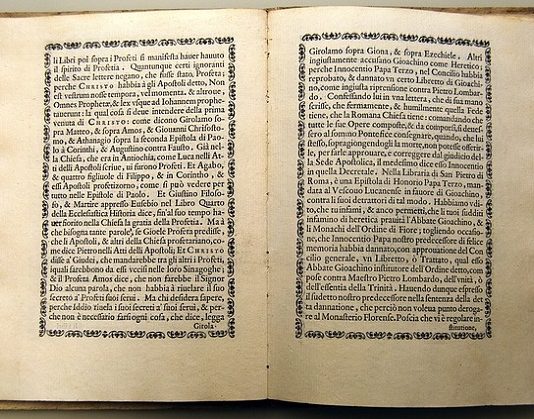 li Libri poi sopra i Profeti si manifesta hauer hauuto
il spirito di Profetia. Quantunque certi ignoranti
delle Sacre lettere negano, che fusse stato Profeta;
perche CHRISTO habbia à gli Apostoli detto, Non
est vestrum nosse tempora, vel momenta. & altroue,
Omnes Prophetæ, & lex vsque ad Iohannem prophe-
tauerunt: la qual cosa si deue intendere della prima
venuta di CHRISTO: come dicono Girolamo so-
pra Matteo, & sopra Amos, & Giouanni Chrisosto-
mo, & Athanagio sopra la seconda Epistola di Pao-
lo à Corinthi, & Augustino contra Fausto. Già nel-
la Chiesa, che era in Antiochia, come Luca nelle At-
ti delli Apostoli scriue, ui furono Profeti. Et Agabo,
& quattro figliuole di Filippo, & in Corintho, &
essi Apostoli profetizorno, come si può vedere per
tutto nelle Epistole di Paolo. Et Giustino Filoso-
fo, & Martire appresso Eusebio nel Libro Quarto
della Ecclesiastica Historia dice, sin'al suo tempo ha-
uer fiorito nella Chiesa la gratia della Profetia. Mà à
che bisogna tante parole, se Gioele Profera predisse,
che li Apostoli, & altri della Chiesa profetariano, co-
me dice Pietro nelli Atti delli Apostoli; Et CHRISTO
disse à Giudei, che mandarebbe tra gli altri i Profeti,
iquali sarebbono da essi vccisi nelle loro Sinagoghe;
& il Profeta Amos dice, che non sarebbe il Signor
Dio alcuna parola, che non habbia à riuelare il suo
secreto à Profeti suoi serui. Ma chi desidera sapere,
perche Iddio riuela i suoi secreti à suoi serui, & per-
che non è necessario farsi ogni cosa, che dice, legga
Girola-
Girolamo sopra Giona, & sopra Ezechiele. Altri
ingiustamente accusano Gioachino come Heretico;
perche Innocentio Papa Terzo, nel Concilio habbia
reprobato, & dannato vn certo Libretto di Gioachi-
no, come ingiusta riprensione contra Pietro Lombar-
do. Confessando lui in vna lettera, che di sua mano
scrisse, che fermamente, & humilmente quella Fede
tiene, che la Romana Chiesa tiene: comandando che
tutte le sue Opere composte, & da comporsi si detes-
sero al sommo Pontefice consegnare, quando, che lui
stesso, sopragiongendogli la morte, non potesse offerir-
le, per farle approuare, e correggere dal giudicio del-
la Sede Apostolica, il medesimo dice esso Innocentio
in quella Decretale. Nella Libraria di San Pietro di
Roma, è vna Epistola di Honorio Papa Terzo, man-
data al Vescouo Lucanense in fauore di Gioachino,
contra li suoi detrattori di tal modo. Habbiamo vdi-
to, che tu infami, & anco permetti, che li tuoi sudditi
infamino di heretica prauità l'Abbate Gioachino, &
li Monachi dell'Ordine di Fiore; togliendo occasio-
ne, che Innocentio Papa nostro predecessore di felice
memoria habbia dannato, con approuatione del Con-
cilio generale, vn Libretto, ò Trattato, qual esso
Abbate Gioachino institutore dell'Ordine detto, com-
pose contra Maestro Pietro Lombardo, dell'vnità, ò
dell'essentia della Trinità. Hauendo dunque espresso
il sudetto nostro predecessore nella sentenza della det-
ta dannatione, che perciò non voleua punto deroga-
re al Monasterio Florense. Poscia che vi è regolare in-
stitutione,